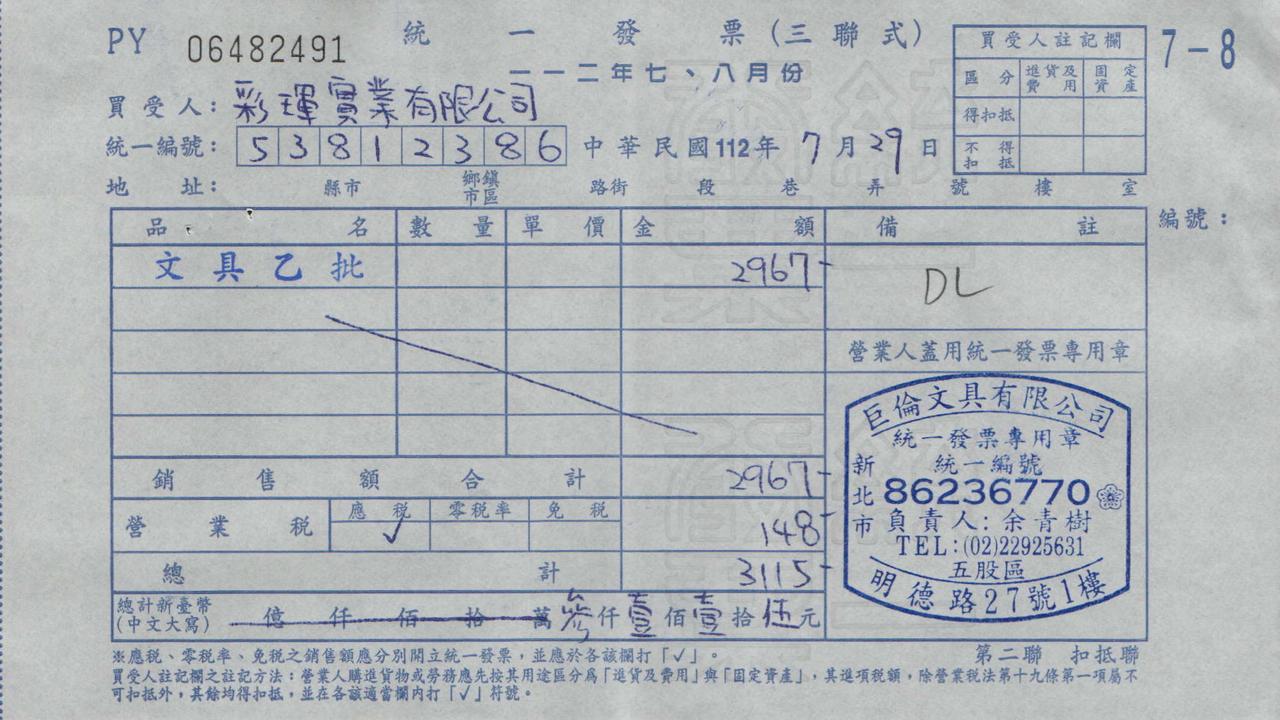 PY 06482491 統一發票(三聯式) 7-8
一一二年七、八月份
買受人註記欄
區分 進貨及費用 固定資產
得扣抵
不得扣抵
買受人: 彩琿實業有限公司
統一編號: 53812386 中華民國112年7月29日
地址: 縣市 鄉鎮市區 路街 段 巷 弄 號 樓 室
編號:
品名 數量 單價 金額 備註
文具乙批 2967- DL
營業人蓋用統一發票專用章
銷售額合計 2967-
營業稅 應稅 ✓ 零稅率 免稅 148-
總計 3115-
總計新臺幣(中文大寫) 億仟佰拾萬參仟壹佰壹拾伍元
巨倫文具有限公司
統一發票專用章
統一編號
86236770
新北市
負責人:余青樹
TEL:(02)22925631
五股區
明德路27號1樓
※應稅、零稅率、免稅之銷售額應分別開立統一發票,並應於各該欄打「✓」。 第二聯 扣抵聯
買受人註記欄之註記方法:營業人購進貨物或勞務應先按其用途區分為「進貨及費用」與「固定資產」,其進項稅額,除營業稅法第十九條第一項屬不
可扣抵外,其餘均得扣抵,並在各該適當欄內打「✓」符號。